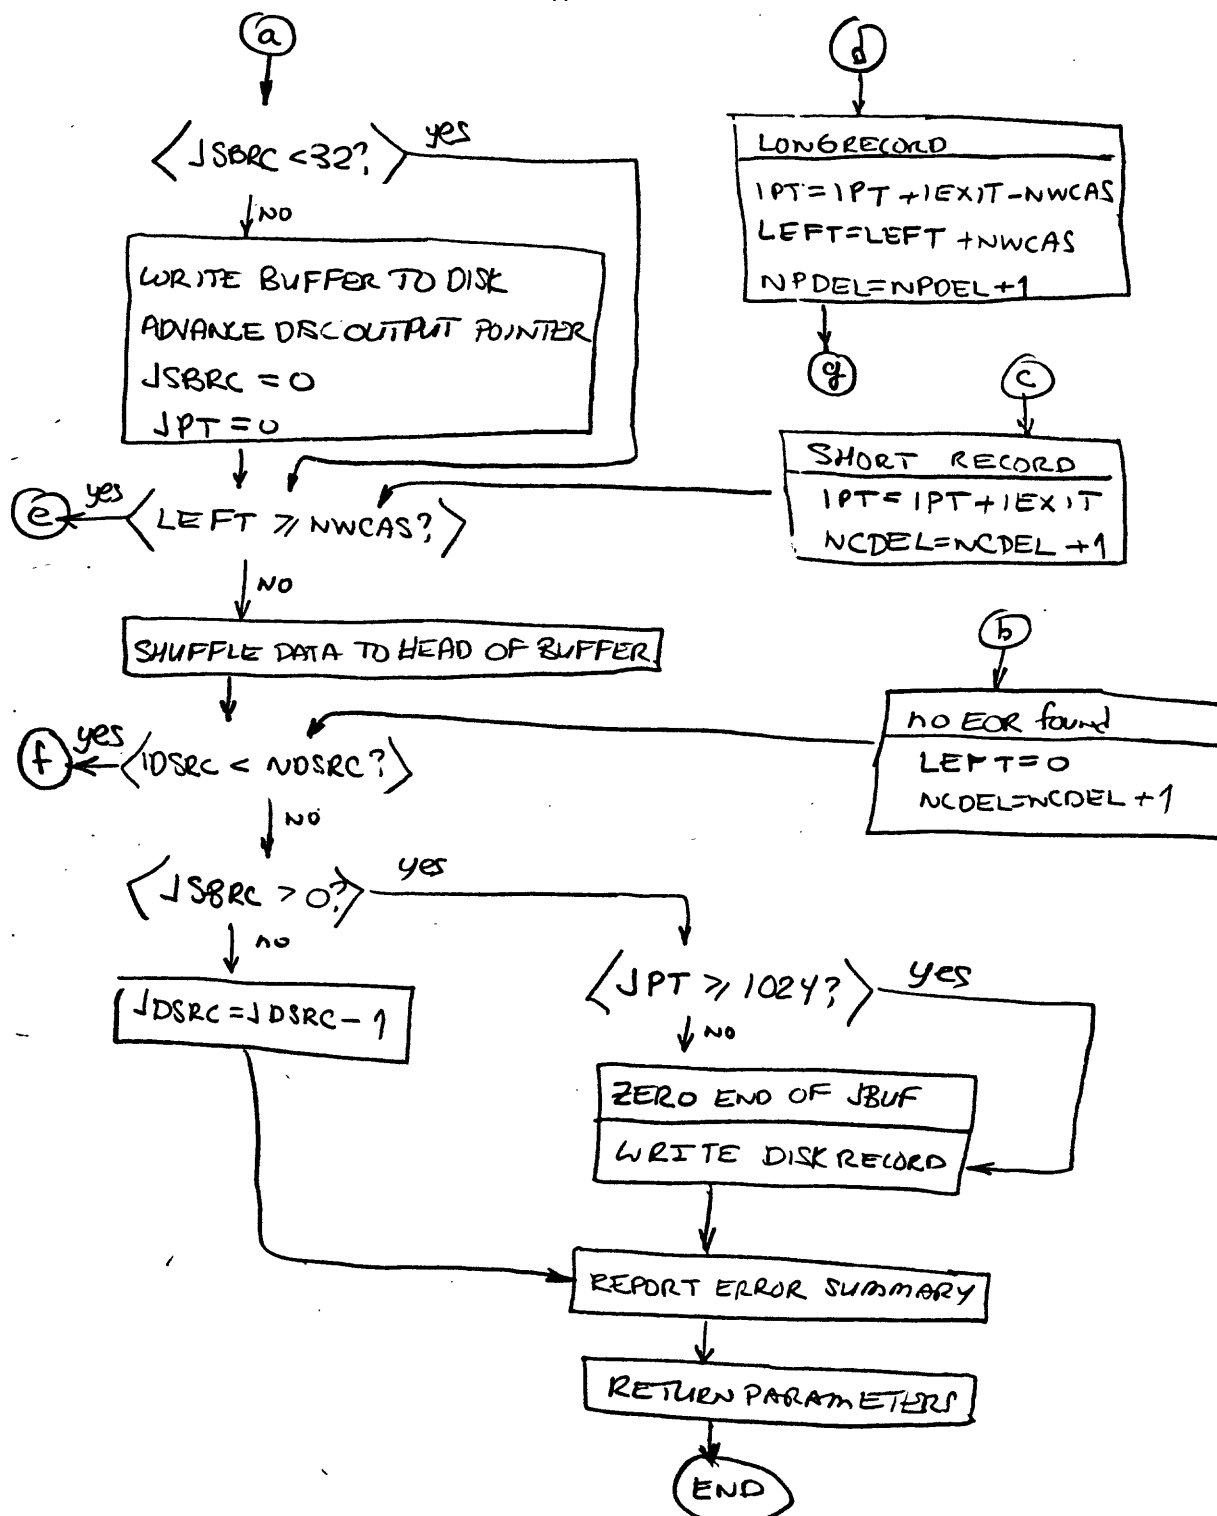 a
JSBRC <32?
yes
NO
WRITE BUFFER TO DISK
ADVANCE DISC OUTPUT POINTER
JSBRC = 0
JPT = 0
LEFT ⩾ NWCAS?
yes
e
NO
SHUFFLE DATA TO HEAD OF BUFFER
IDSRC < NDSRC?
yes
f
NO
JSBRC > 0?
yes
no
JDSRC = JDSRC - 1
JPT ⩾ 1024?
yes
NO
ZERO END OF JBUF
WRITE DISK RECORD
REPORT ERROR SUMMARY
RETURN PARAMETERS
END
d
LONG RECORD
IPT = IPT + IEXIT - NWCAS
LEFT = LEFT + NWCAS
NPDEL = NPDEL + 1
g
c
SHORT RECORD
IPT = IPT + IEXIT
NCDEL = NCDEL + 1
b
no EOR found
LEFT = 0
NCDEL = NCDEL + 1